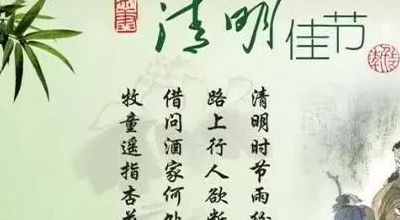 清明佳节
清明时节雨纷
路上行人欲断
借问酒家何处
牧童遥指杏花